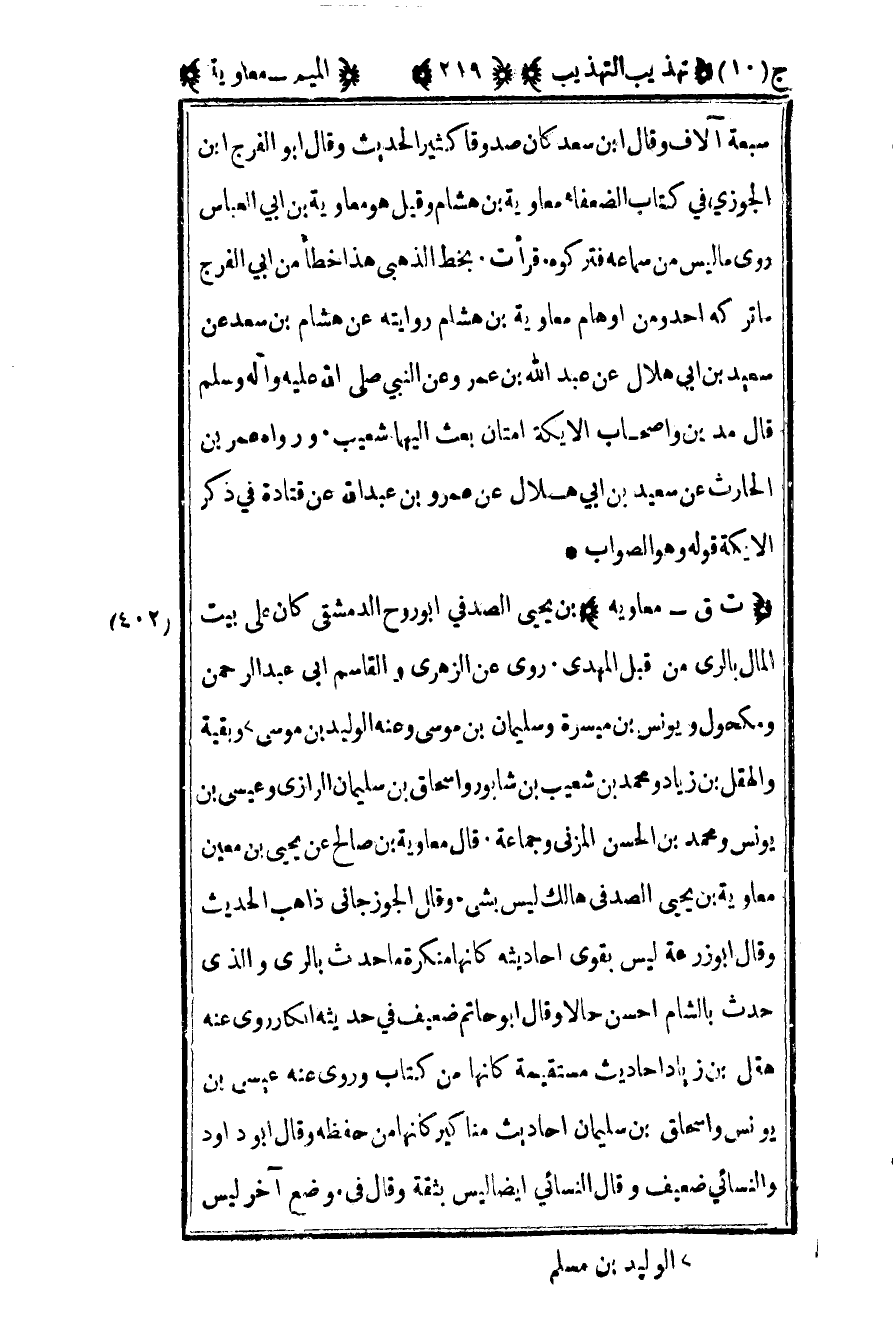 ج(١٠) ﴿ تهذيب التهذيب ﴾ ﴿ ٢١٩ ﴾ ﴿ الميم ــ معاوية ﴾
سبعة آلاف وقال ابن سعد كان صدوقا كثير الحديث وقال ابو الفرج ابن
الجوزي في كتاب الضعفاء معاوية بن هشام وقيل هو معاوية بن ابي العباس
روى ما ليس من سماعه فتركوه. قرأت. بخط الذهبى هذا خطأ من ابي الفرج
ما تركه احد ومن اوهام معاوية بن هشام روايته عن هشام بن سعد عن
سعيد بن ابي هلال عن عبد الله بن عمر وعن النبي صلى الله عليه وآله وسلم
قال مدين واصحاب الايكة امتان بعث اليها شعيب. ورواه عمر بن
الحارث عن سعيد بن ابي هلال عن عمرو بن عبد الله عن قتادة في ذكر
الايكة قوله وهو الصواب •
﴿ ت ق ــ معاويه ﴾ بن يحيى الصدفي ابو روح الدمشقى كان على بيت (٤٠٢)
المال بالرى من قبل المهدى. روى عن الزهرى والقاسم ابى عبد الرحمن
ومكحول ويونس بن ميسرة وسليمان بن موسى وعنه الوليد بن موسى > وبقية
والهقل بن زياد ومحمد بن شعيب بن شابور واسحاق بن سليمان الرازى وعيسى بن
يونس ومحمد بن الحسن المزنى وجماعة. قال معاوية بن صالح عن يحيى بن معين
معاوية بن يحيى الصدفى هالك ليس بشى. وقال الجوزجانى ذاهب الحديث
وقال ابو زرعة ليس بقوى احاديثه كانها منكرة ما حدث بالرى والذى
حدث بالشام احسن حالا وقال ابو حاتم ضعيف في حديثه انكار روى عنه
هقل بن زياد احاديث مستقيمة كانها من كتاب وروى عنه عيسى بن
يونس واسحاق بن سليمان احاديث مناكير كانها من حفظه وقال ابو داود
والنسائي ضعيف وقال النسائي ايضا ليس بثقة وقال فى موضع آخر ليس
> الوليد بن مسلم